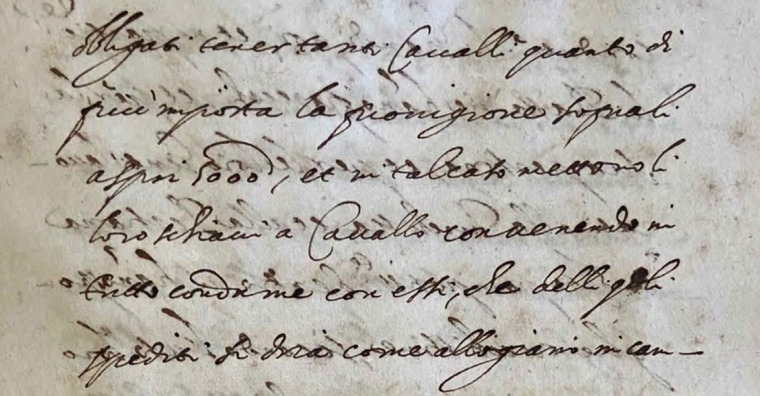 obligati tener tanti Cavalli quanto di
più importa la provigione sopra li
aspri 5000, et in tal caso mettono li
loro schiavi a Cavallo convenendo in
tutto condurne con essi, che delli
spediti si dirà come allogiano in cam-